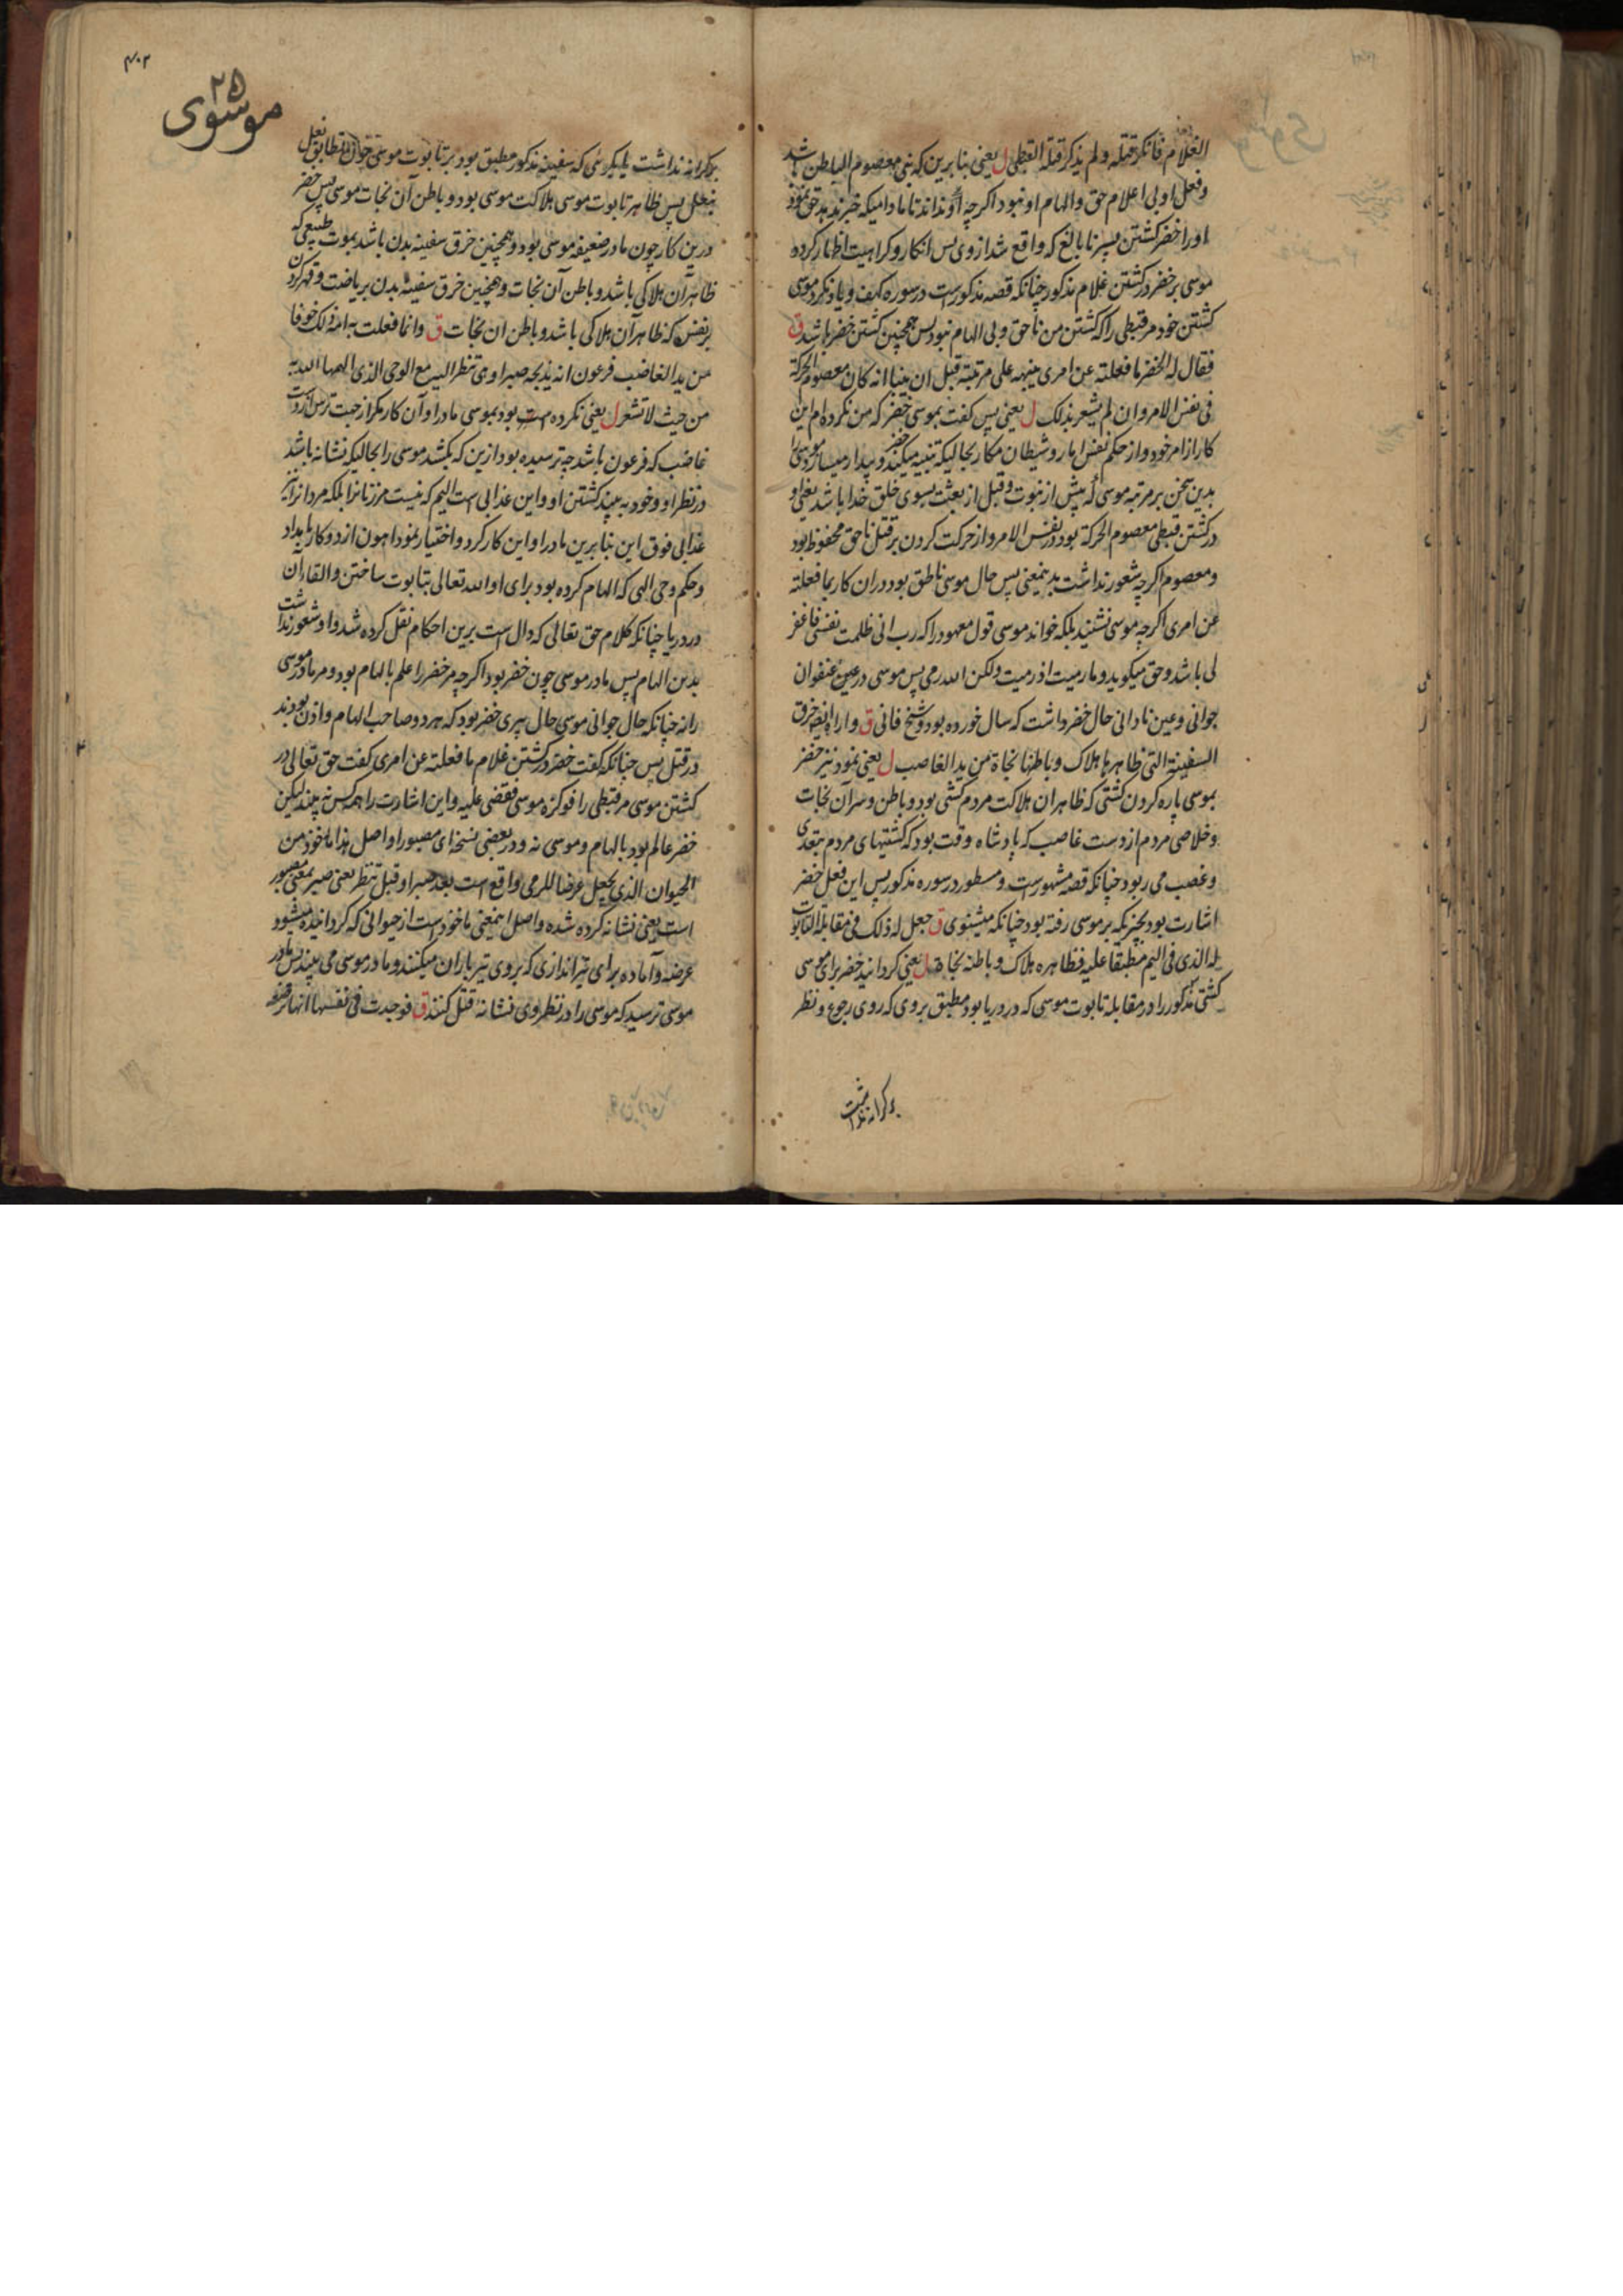 الغلام فانکر قتله ولم یذکر قتله القبطی ل یعنی بنا برین که نبی معصوم الباطن باشد
وفعل او بی اعلام حق والهام او نبود اگرچه او نداند تا مادامیکه خبر ندهد حق نمود
اورا خضر کشتن پسر نابالغ که واقع شد از وی پس انکار و کراهیت اظهار کرده
موسی بر خضر در کشتن غلام مذکور چنانکه قصه مذکورست در سوره کهف و یاد نکرد موسی
کشتن خود مر قبطی را که کشتن من ناحق و بی الهام نبود پس همچنین کشتن خضر باشد ق
فقال له الخضر ما فعلته عن امری ینبهه علی مرتبته قبل ان ینبا انه کان معصوم الحرکة
فی نفس الامر وان لم یشعر بذلک ل یعنی پس گفت بموسی خضر که من نکرده ام این
کار از امر خود و از حکم نفس اماره و شیطان مکار بحالیکه تنبیه میکند خضر و بیدار میسازد موسی را
بدین سخن بر مرتبه موسی که پیش از نبوت و قبل از بعثت بسوی خلق خدا باشد یعنی او
در کشتن قبطی معصوم الحرکة بود در نفس الامر و از حرکت کردن بر قتل ناحق محفوظ بود
و معصوم اگرچه شعور نداشت بدینمعنی پس حال موسی ناطق بود دران کار بما فعلته
عن امری اگرچه موسی نشنید بلکه خواند موسی قول معهود را که رب انی ظلمت نفسی فاغفر
لی باشد و حق میگوید و ما رمیت اذ رمیت ولکن الله رمی پس موسی در عین عنفوان
جوانی و عین نادانی حال خضر داشت که سال خورده بود و شیخ فانی ق واراه ایضا خرق
السفینة التی ظاهرها هلاک و باطنها نجاة من ید الغاصب ل یعنی نمود نیز خضر
بموسی پاره کردن کشتی که ظاهر ان هلاکت مردم کشتی بود و باطن و سر آن نجات
و خلاصی مردم از دست غاصب که پادشاه وقت بود که کشتیهای مردم بتعدی
و غصب می ربود چنانکه قصه مشهورست و مسطور در سوره مذکور پس این فعل خضر
اشارت بود بچیزیکه بر موسی رفته بود چنانکه میشنوی ق جعل له ذلک فی مقابلة التابوت
له الذی فی الیم مطبقا علیه فظاهره هلاک و باطنه نجاة ل یعنی گردانید خضر برای موسی
کشتی مذکور را در مقابله تابوت موسی که در دریا بود مطبق بروی که روی رجوع و نظر
بر کرانه نداشت
۴۰۲
۲۵
موسوی
بر کرانه نداشت یا بگوئی که سفینه مذکور مطبق بود بر تابوت موسی چون تطابق نعل
بنعل پس ظاهر تابوت موسی هلاکت موسی بود و باطن آن نجات موسی پس خضر
درین کار چون مادر ضعیفه موسی بود و همچنین خرق سفینه بدن باشد بموت طبیعی که
ظاهر آن هلاکی باشد و باطن آن نجات و همچنین خرق سفینه بدن بریاضت و قهر کردن
بر نفس که ظاهر آن هلاکی باشد و باطن ان نجات ق وانما فعلت به امه ذلک خوفا
من ید الغاصب فرعون انه یذبحه صبرا وهی تنظر الیه مع الوحی الذی الهمها الله به
من حیث لا تشعر ل یعنی نکرده است بود بموسی مادر او آن کار مگر از جهت ترس از دست
غاصب که فرعون باشد چه ترسیده بود ازین که بکشد موسی را بحالیکه نشانه باشد
در نظر او و خود به بیند کشتن او و این عذابی است الیم که نیست مر زنانرا بلکه مردانرا نیز
عذابی فوق این بنا برین مادر او این کار کرد و اختیار نمود اهون از دو کار با مداد
و حکم وحی الهی که الهام کرده بود برای او الله تعالی بتابوت ساختن و القاء آن
در دریا چنانکه کلام حق تعالی که دال است برین احکام نقل کرده شد و او شعور نداشت
بدین الهام پس مادر موسی چون خضر بود اگرچه مر خضر را علم بالهام بود و مر مادر موسی
را نه چنانکه حال جوانی موسی حال پیری خضر بود که هر دو صاحب الهام و اذن بودند
در قتل پس چنانکه گفت خضر در کشتن غلام ما فعلته عن امری گفت حق تعالی در
کشتن موسی مر قبطی را فوکزه موسی فقضی علیه و این اشارت را همه کس نه بیند لیکن
خضر عالم بود بالهام و موسی نه و در بعضی نسخه ای مصبورا و اصل هذا ماخوذ من
الحیوان الذی یجعل عرضا للرمی واقع است بعد صبرا و قبل تنظر یعنی صبر بمعنی مصبور
است یعنی نشانه کرده شده و اصل اینمعنی ماخوذ است از حیوانی که گردانیده میشود
عرضه و آماده برای تیراندازی که بروی تیر باران میکنند و مادر موسی می بیند پس مادر
موسی ترسید که موسی را در نظر وی نشانه قتل کنند ق فوجدت فی نفسها انها ترضعه